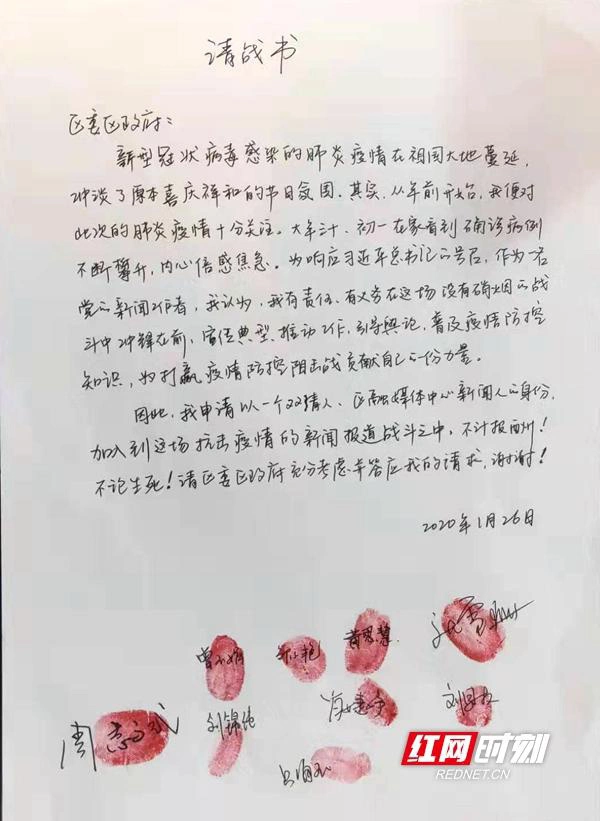 请战书
区委区政府：
新型冠状病毒感染的肺炎疫情在祖国大地蔓延，
冲淡了原本喜庆祥和的节日氛围。其实，从年前开始，我便对
此次的肺炎疫情十分关注。大年三十、初一在家看到确诊病例
不断攀升，内心倍感焦急。为响应习近平总书记的号召，作为一名
党的新闻工作者，我认为，我有责任、有义务在这场没有硝烟的战
斗中冲锋在前，宣传典型、推动工作，引导舆论，普及疫情防控
知识，为打赢疫情防控阻击战贡献自己的一份力量。
因此，我申请以一个双清人、区融媒体中心新闻人的身份，
加入到这场抗击疫情的新闻报道战斗之中，不计报酬！
不论生死！请区委区政府充分考虑并答应我的请求，谢谢！
2020年1月26日
刘锦绝
周
红网时刻
REDNET.CN